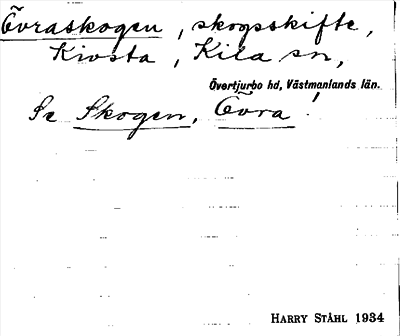 Övraskogen, skogsskifte,
Kivsta, Kila sn,
Övertjurbo hd, Västmanlands län.
Se Skogen, Övra!
HARRY STÅHL 1934